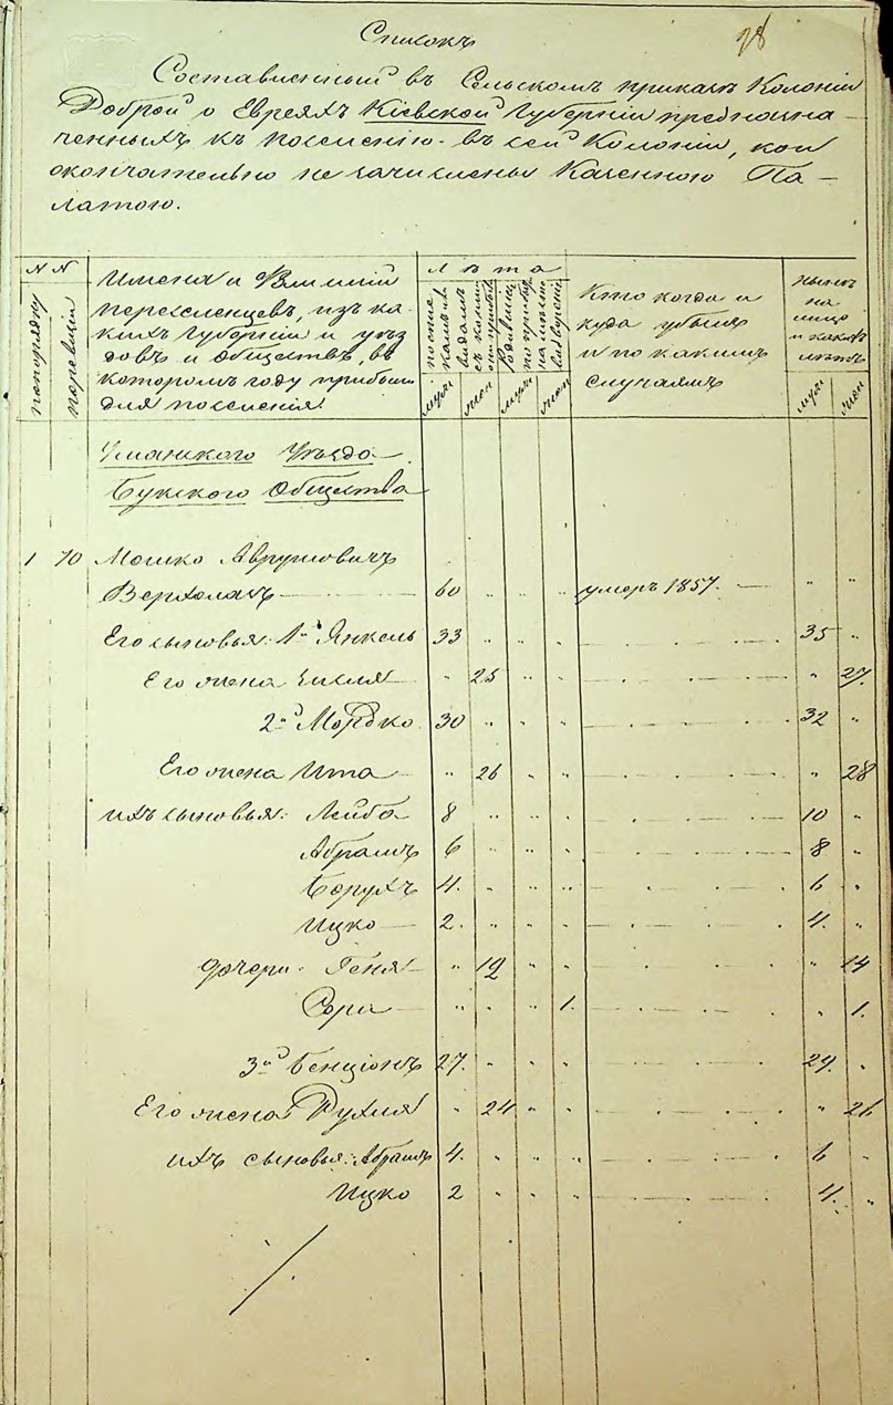 98
Списокъ
Составленный въ Сельскомъ приказѣ Колоніи
Доброй о Евреяхъ Кіевской Губерніи предназна-
ченныхъ къ поселенію въ сей Колоніи, кои
окончательно не зачислены Казенною Па-
латою.
№ №
попорядку
поревизіи
Имена и Фамиліи
переселенцевъ, изъ ка-
кихъ Губерній и уѣз
довъ и обществъ, въ
которомъ году прибыли
для поселенія
Лѣта
муж
жен
муж
жен
Кто когда и
куда убылъ
и по какимъ
случаямъ
нынѣ
на
лицо
и какихъ
лѣтъ
муж
жен
Уманскаго Уѣзда
Букскаго Общества
1 70 Мошко Аврумовичъ
Верхолазъ 60 " " " умеръ 1857. " "
Его сыновья: 1й Янкель 33 " " " 35 "
Его жена " 25 " " " 27.
2й Мордко 30 " " " 32 "
Его жена Ита " 26 " " " 28
ихъ сыновья: Лейба 8 " " " 10 "
Абрамъ 6 " " " 8 "
Борухъ 4. " " " 6 "
Ицко 2. " " " 4. "
дочери: Геня " 12 " " " 14
Сура " " " 1. " 1.
3й Бенціонъ 27. " " " 29. "
Его жена Рухля " 24 " " " 26
ихъ сыновья: Абрамъ 4. " " " 6 "
Ицко 2 " " " 4. "